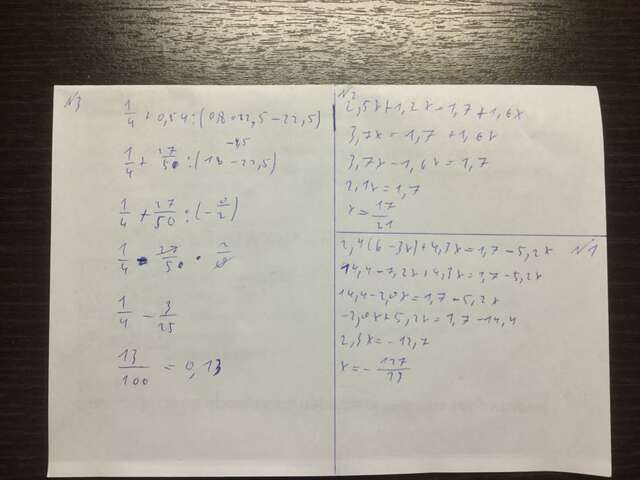 N3
1/4 + 0,54 : (0,8 · 22,5 - 22,5)
-4,5
1/4 + 27/50 : (18 - 22,5)
1/4 + 27/50 : (-9/2)
1/4 - 27/50 · 2/9
1/4 - 3/25
13/100 = 0,13
N2
2,5x + 1,2x = 1,7 + 1,6x
3,7x = 1,7 + 1,6x
3,7x - 1,6x = 1,7
2,1x = 1,7
x = 17/21
N1
2,4(6 - 3x) + 4,3x = 1,7 - 5,2x
14,4 - 7,2x + 4,3x = 1,7 - 5,2x
14,4 - 2,9x = 1,7 - 5,2x
-2,9x + 5,2x = 1,7 - 14,4
2,3x = -12,7
x = - 127/23